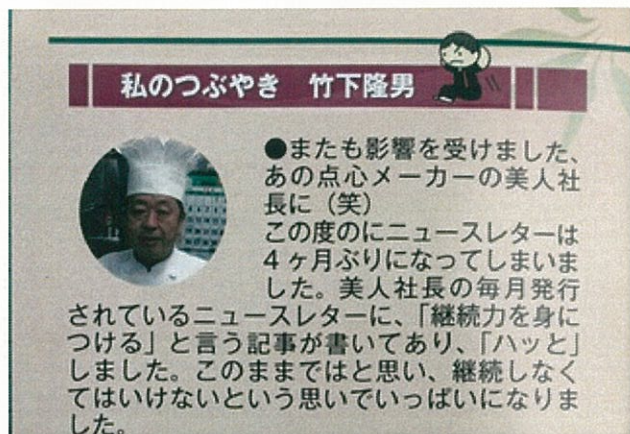 私のつぶやき 竹下隆男
●またも影響を受けました、
あの点心メーカーの美人社
長に（笑）
この度のにニュースレターは
4ヶ月ぶりになってしまいま
した。美人社長の毎月発行
されているニュースレターに、「継続力を身に
つける」と言う記事が書いてあり、「ハッと」
しました。このままではと思い、継続しなく
てはいけないという思いでいっぱいになりま
した。